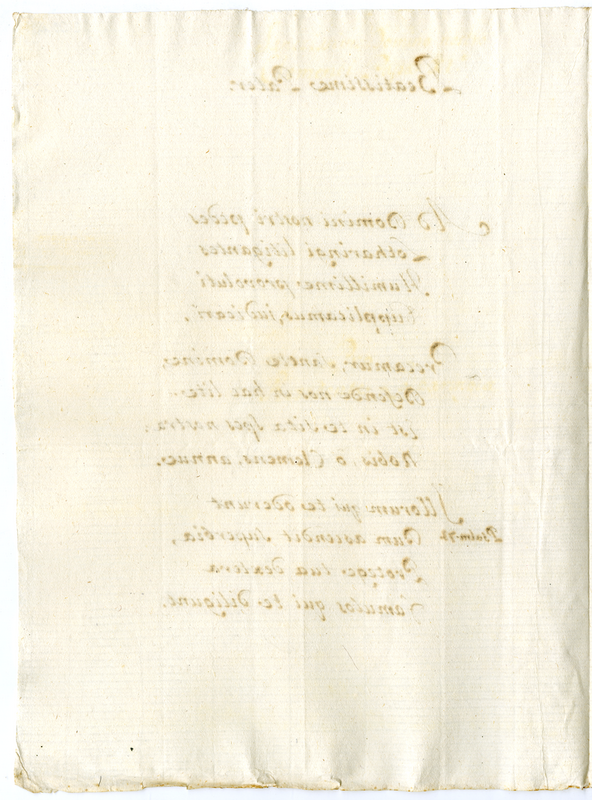 Beatissime Pater.
Ad Domini nostri pedes
Lotharingi litigantes
Humillime provoluti
supplicamus, iudicari,
Precamur, sancte Domine,
Defende nos in hac lite
Est in te sita spes nostra.
Nobis, ô Clemens, annue.
Illorum qui te oderunt
Psalm. 73 Dum ascendit superbia,
Protege tua dextera
Famulos qui te diligunt.